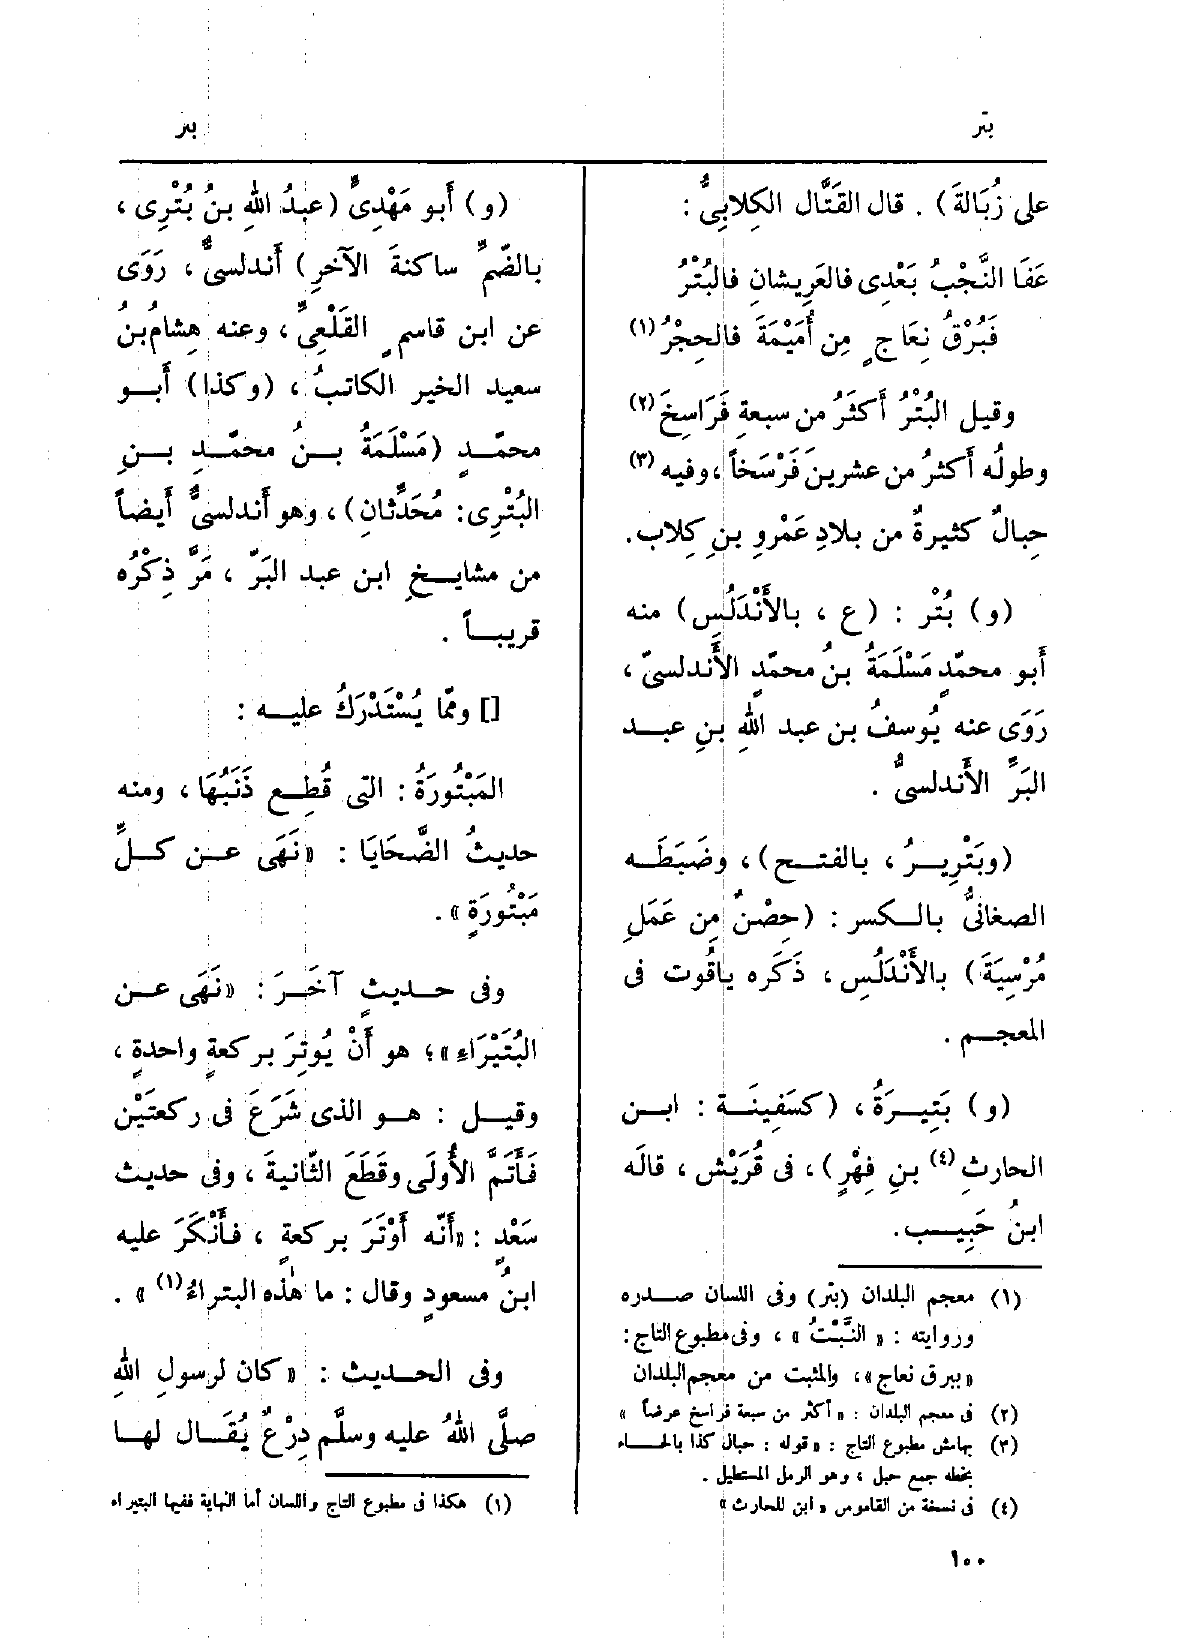 بتر
بتر
على زُبَالةَ) . قال القَتَّال الكِلابِىُّ :
عَفَا النَّجْبُ بَعْدِى فالعَرِيشانِ فالبُتْرُ
فَبُرْقُ نِعَاجٍ مِن أُمَيْمَةَ فالحِجْرُ (١)
وقيل البُتْرُ أَكثَرُ من سبعةِ فَرَاسِخَ (٢)
وطولُه أَكثرُ من عشرينَ فَرْسَخاً ، وفيه (٣)
حِبالٌ كثيرةٌ من بلادِ عَمْرِو بنِ كِلاب.
(و) بُتْر : (ع ، بالأَنْدَلُسِ) منه
أَبو محمّدٍ مَسْلَمَةُ بنُ محمدٍ الأَندلسىّ ،
رَوَى عنه يُوسفُ بن عبد اللهِ بنِ عبد
البَرِّ الأَندلسىُّ .
(وبَتْرِيرُ ، بالفتح) ، وضَبَطَه
الصغانىُّ بالكسر : (حِصْنٌ مِن عَمَلِ
مُرْسِيَةَ) بالأَنْدَلُسِ ، ذَكَره ياقُوت فى
المعجم .
(و) بَتِيرَةُ ، (كسَفِينَة : ابن
الحارثِ (٤) بنِ فِهْرٍ) ، فى قُرَيْش ، قالَه
ابنُ حَبِيب.
(١) معجم البلدان (بتر) وفى اللسان صدره
وروايته : « النَّبْتُ » ، وفى مطبوع التاج :
« ببرق نعاج » ، والمثبت من معجم البلدان
(٢) فى معجم البلدان : « أكثر من سبعة فراسخ عرضاً »
(٣) بهامش مطبوع التاج : « قوله : حبال كذا بالحاء
بخطه جمع حبل ، وهو الرمل المستطيل .
(٤) فى نسخة من القاموس « ابن للحارث »
(و) أَبو مَهْدِىٍّ (عبدُ اللهِ بنُ بُتْرِى ،
بالضّمِّ ساكنةَ الآخرِ) أَندلسىٌّ ، رَوَى
عن ابن قاسمٍ القَلْعِىِّ ، وعنه هِشامُ بنُ
سعيد الخير الكاتبُ ، (وكذا) أَبو
محمّدٍ (مَسْلَمَةُ بنُ محمّدِ بنِ
البُتْرِى: مُحَدِّثانِ) ، وهو أَندلسىٌّ أَيضاً
من مشايخِ ابن عبد البَرِّ ، مَرَّ ذِكْرُه
قريباً .
[] وممّا يُسْتَدْرَكُ عليه :
المَبْتُورَةُ : التى قُطِع ذَنَبُهَا ، ومنه
حديثُ الضَّحَايَا : «نَهَى عن كلِّ
مَبْتُورَةٍ » .
وفى حديثٍ آخَرَ : «نَهَى عن
البُتَيْرَاءِ » ؛ هو أَنْ يُوتِرَ بركعةٍ واحدةٍ ،
وقيل : هو الذى شَرَعَ فى ركعتَيْن
فَأَتَمَّ الأُولَى وقَطَعَ الثّانيةَ ، وفى حديث
سَعْدٍ : «أَنّه أَوْتَرَ بركعةٍ ، فأَنْكَرَ عليه
ابنُ مسعودٍ وقال : ما هٰذه البتراءُ (١) » .
وفى الحديث : « كان لرسولِ اللهِ
صلَّى اللهُ عليه وسلَّم دِرْعٌ يُقَال لها
(١) هكذا فى مطبوع التاج واللسان أما النهاية ففيها البتيراء
١٠٠